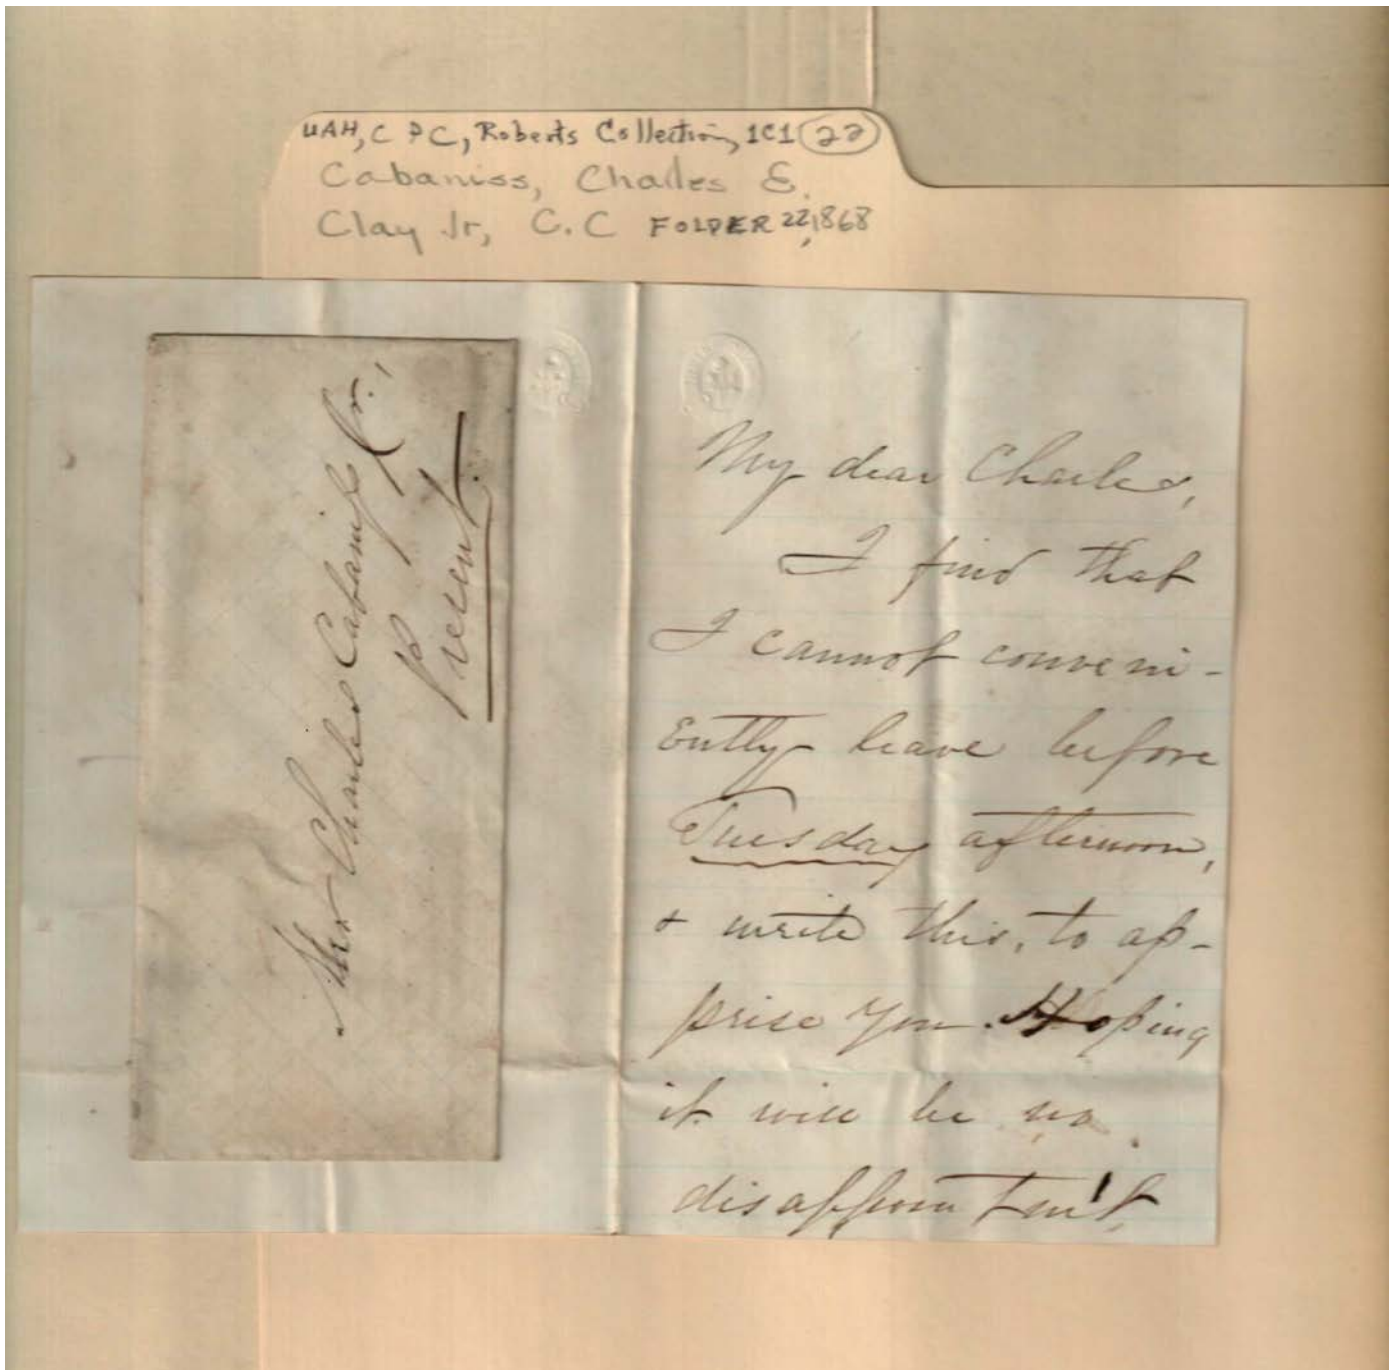 UAH, C P C, Roberts Collection, 1C1 (22)
Cabaniss, Charles E.
Clay Jr, C.C FOLDER 22, 1868
Mr Charles Cabaniss Jr.,
Present.
My dear Charles,
I find that
I cannot conveni-
ently leave before
Tuesday afternoon,
& write this, to ap-
prise you. Hoping
it will be no
disappointm't,